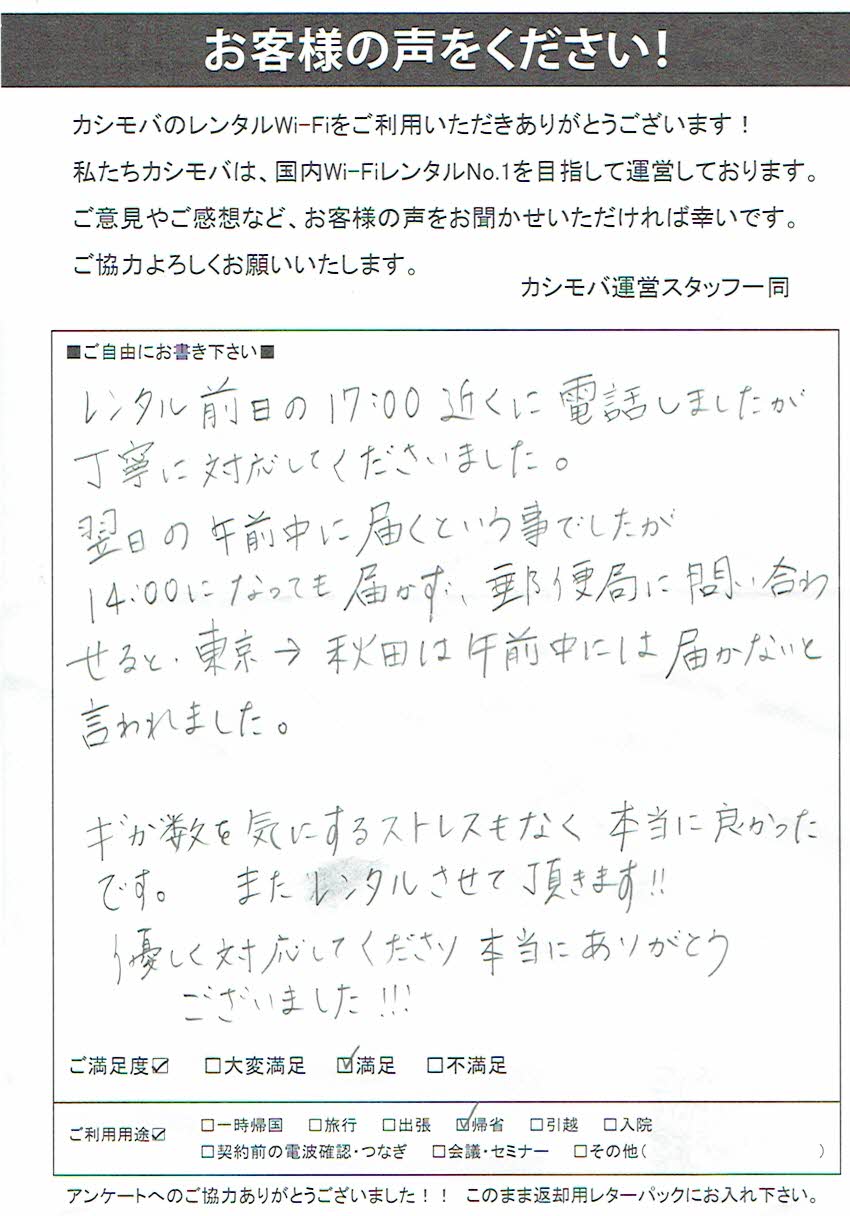 お客様の声をください!
カシモバのレンタルWi-Fiをご利用いただきありがとうございます！
私たちカシモバは、国内Wi-FiレンタルNo.1を目指して運営しております。
ご意見やご感想など、お客様の声をお聞かせいただければ幸いです。
ご協力よろしくお願いいたします。
カシモバ運営スタッフ一同
■ご自由にお書き下さい■
レンタル前日の17:00近くに電話しましたが
丁寧に対応してくださいました。
翌日の午前中に届くという事でしたが
14:00になっても届かず、郵便局に問い合わ
せると、東京→秋田は午前中には届かないと
言われました。
ギガ数を気にするストレスもなく本当に良かった
です。 またレンタルさせて頂きます!!
優しく対応してくださり本当にありがとう
ございました!!!
ご満足度☑ □大変満足 ☑満足 □不満足
ご利用用途☑ □一時帰国 □旅行 □出張 ☑帰省 □引越 □入院
□契約前の電波確認・つなぎ □会議・セミナー □その他( )
アンケートへのご協力ありがとうございました！！ このまま返却用レターパックにお入れ下さい。